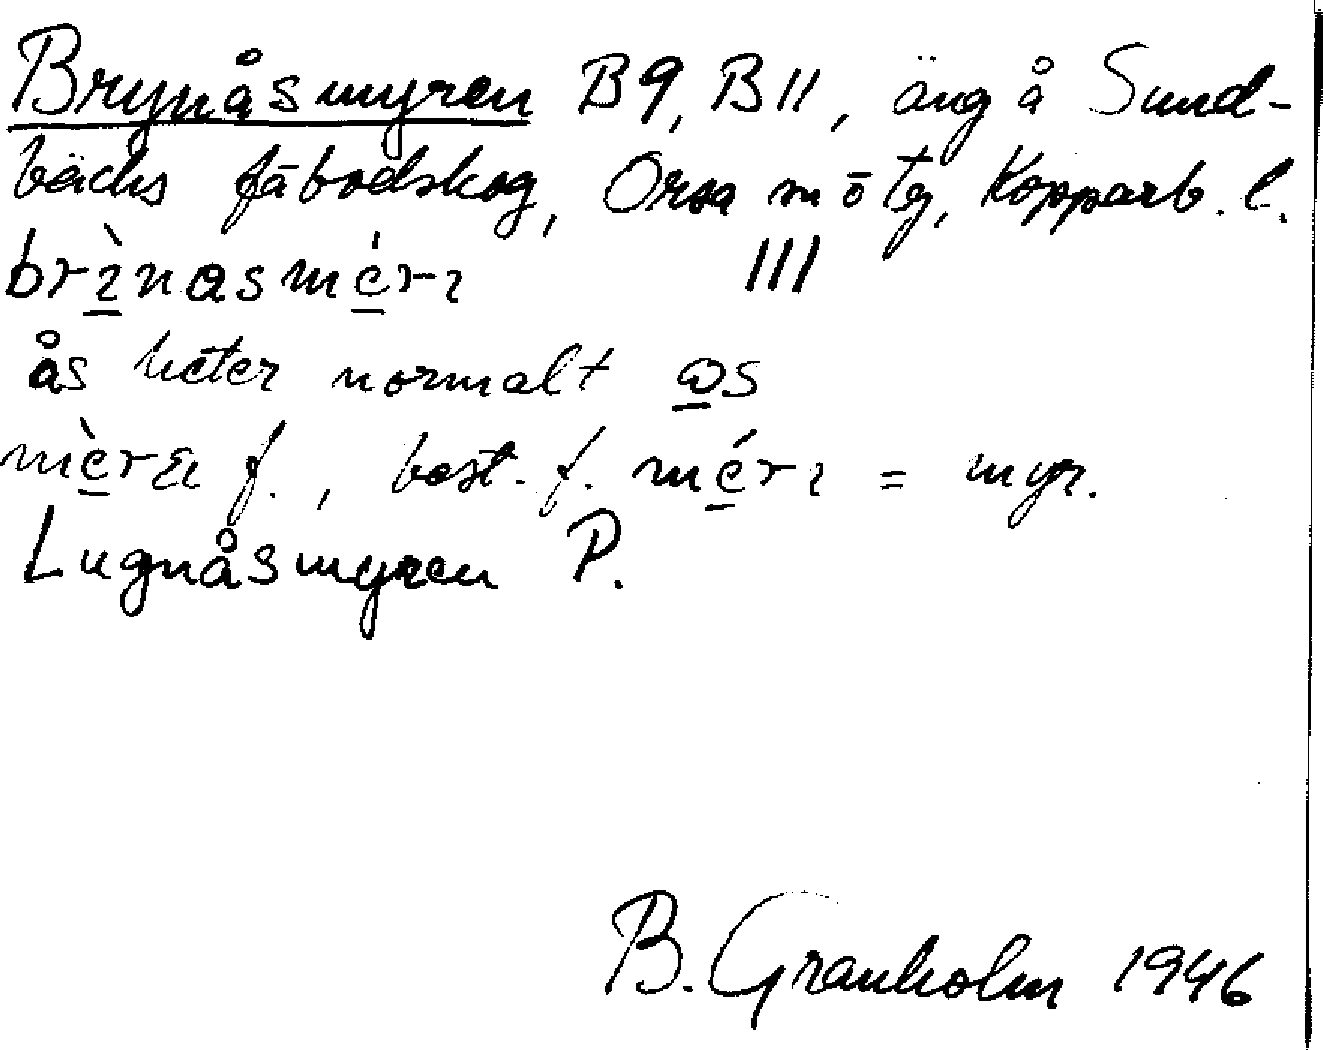 Brynåsmyren B9, B11, äng å Sund-
bäcks fäbodskog, Orsa s:n ö tg, Kopparb. l.
brı̀nasmérı III
ås heter normalt ꞷs
f., best. f. mérı = myr.
Lugnåsmyren P.
B. Granholm 1946